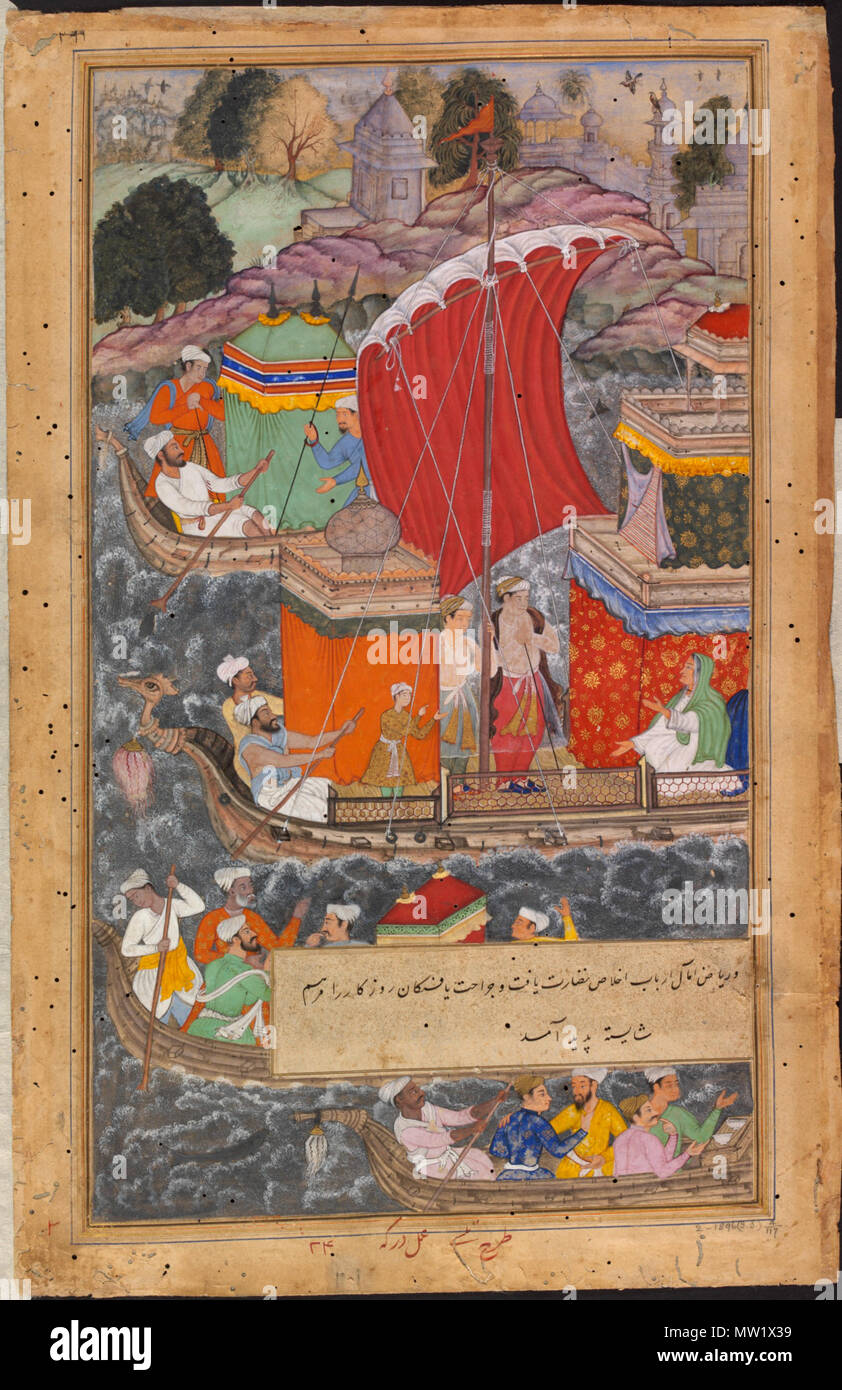 و ریاض آمال ارباب اخلاص نضارت یافت و جراحت یافتگان روزگار را مرهم
شایسته پدید آمد
طرح تلسی عمل درگه ۲۴
2-1896
117
alamy
Image ID: MW1X39
www.alamy.com